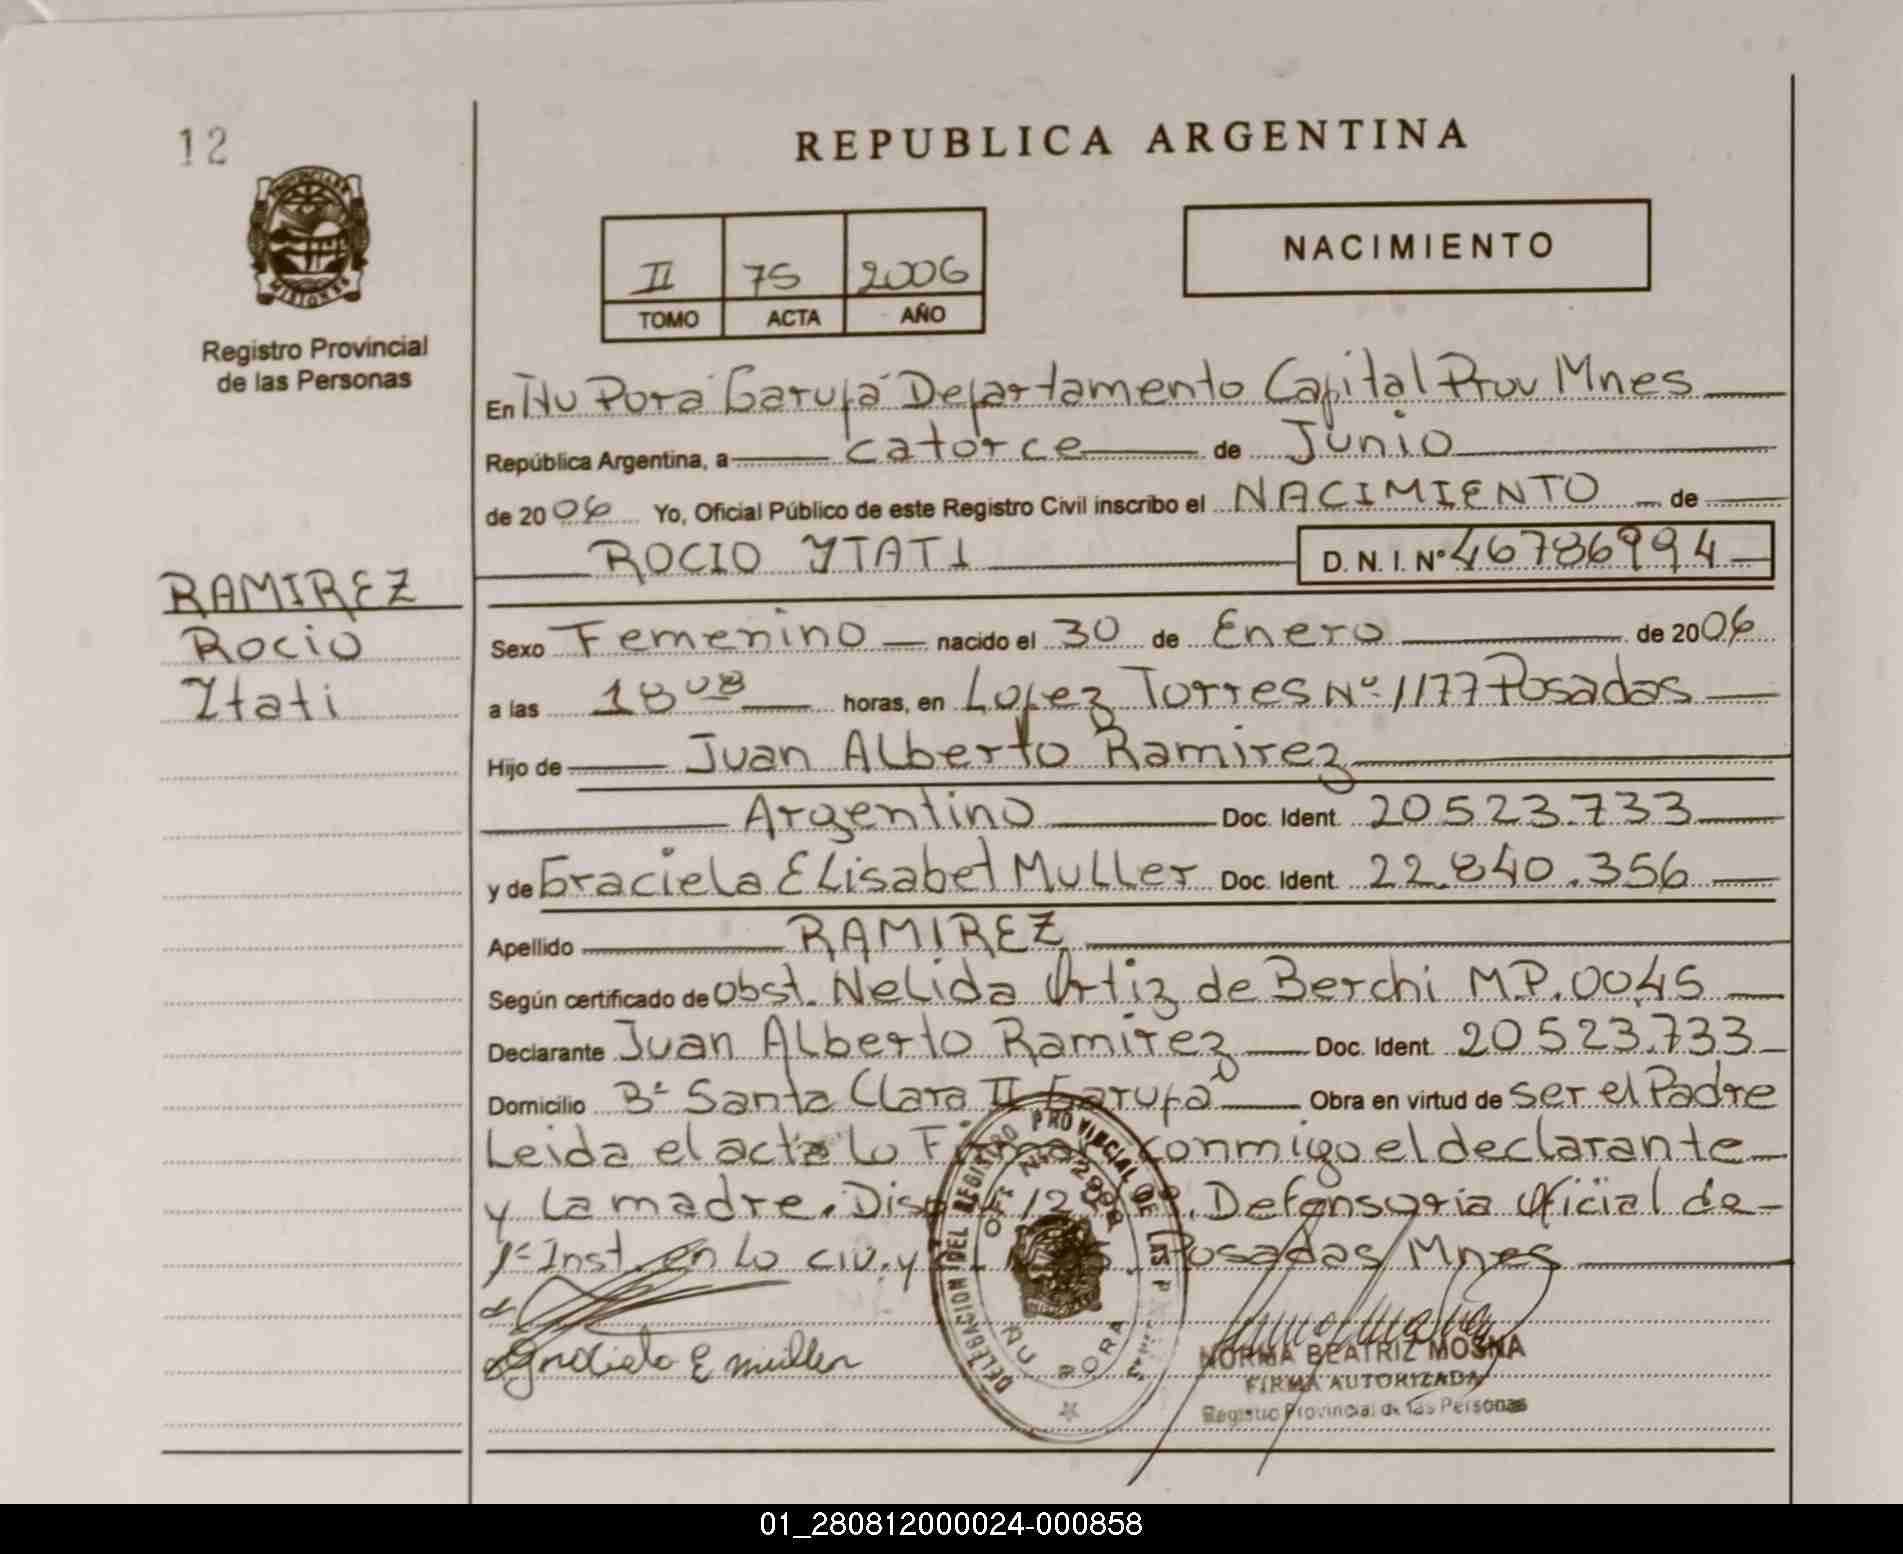 12
REPUBLICA ARGENTINA
NACIMIENTO
II 75 2006
TOMO ACTA AÑO
PROVINCIA DE
MISIONES
Registro Provincial
de las Personas
En Ñu Porá Garupá Departamento Capital Prov Mnes
República Argentina, a catorce de Junio
de 2006 Yo, Oficial Público de este Registro Civil inscribo el NACIMIENTO de
ROCIO YTATI D. N. I. Nº 46786994
RAMIREZ
Rocio
Ytati
Sexo Femenino nacido el 30 de Enero de 2006
a las 18 08 horas, en Lopez Torres Nº 1177 Posadas
Hijo de Juan Alberto Ramirez
Argentino Doc. Ident. 20523.733
y de Graciela Elisabet Muller Doc. Ident. 22.840.356
Apellido RAMIREZ
Según certificado de obst. Nelida Ortiz de Berchi M.P. 0045
Declarante Juan Alberto Ramirez Doc. Ident. 20523.733
Domicilio Bº Santa Clara II Garupá Obra en virtud de ser el Padre
Leida el acta lo conmigo el declarante
y la madre. Defensoria Oficial de
1º Inst. en lo civ. y Posadas Mnes
Graciela E muller
DELEGACION DEL REGISTRO PROVINCIAL DE LAS P
ÑU PORA
NORMA BEATRIZ MOSNA
FIRMA AUTORIZADA
Registro Provincial de las Personas
01_280812000024-000858